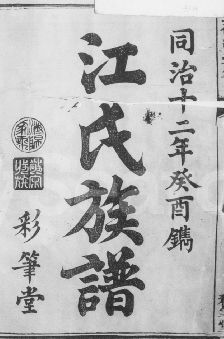 同治十二年癸酉鐫
江氏族譜
彩筆堂